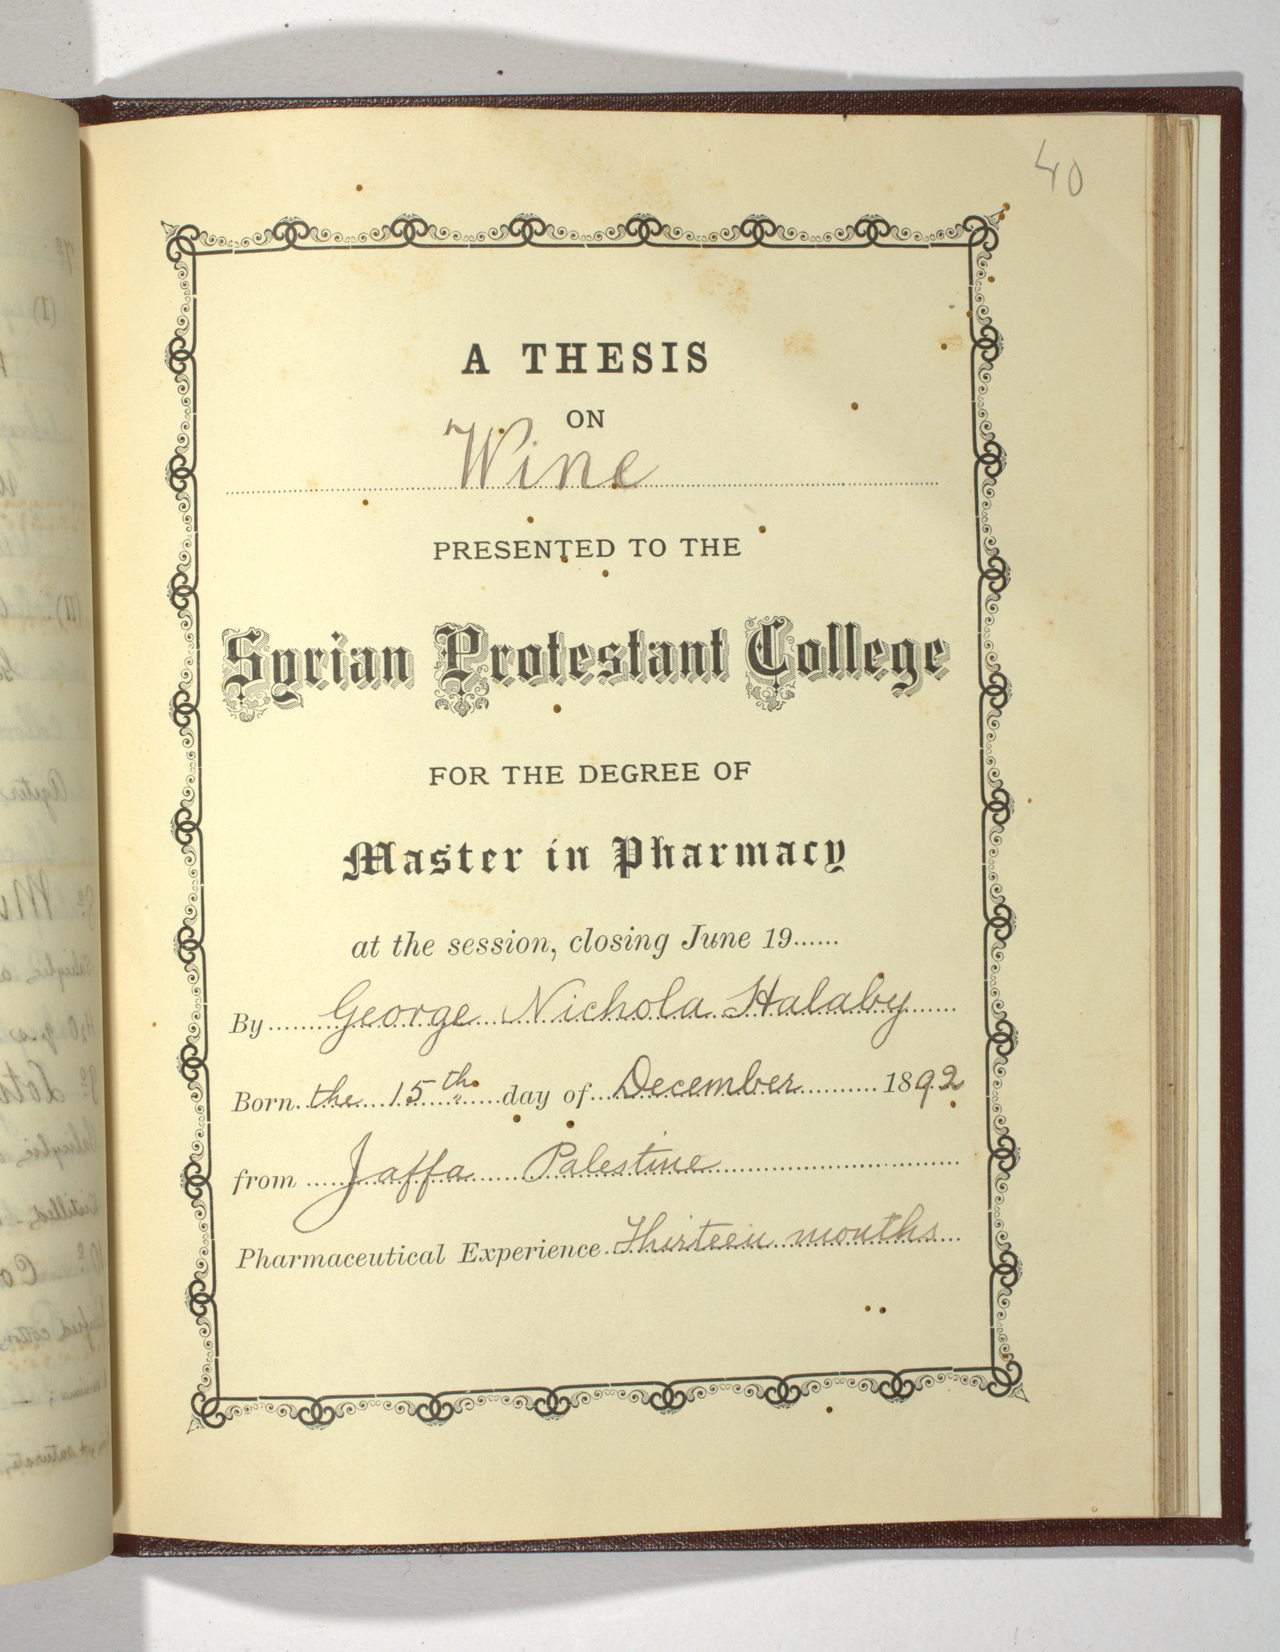 40
A THESIS
ON
Wine
PRESENTED TO THE
Syrian Protestant College
FOR THE DEGREE OF
Master in Pharmacy
at the session, closing June 19......
By George Nichola Halaby
Born the 15th day of December 1892
from Jaffa Palestine
Pharmaceutical Experience Thirteen months